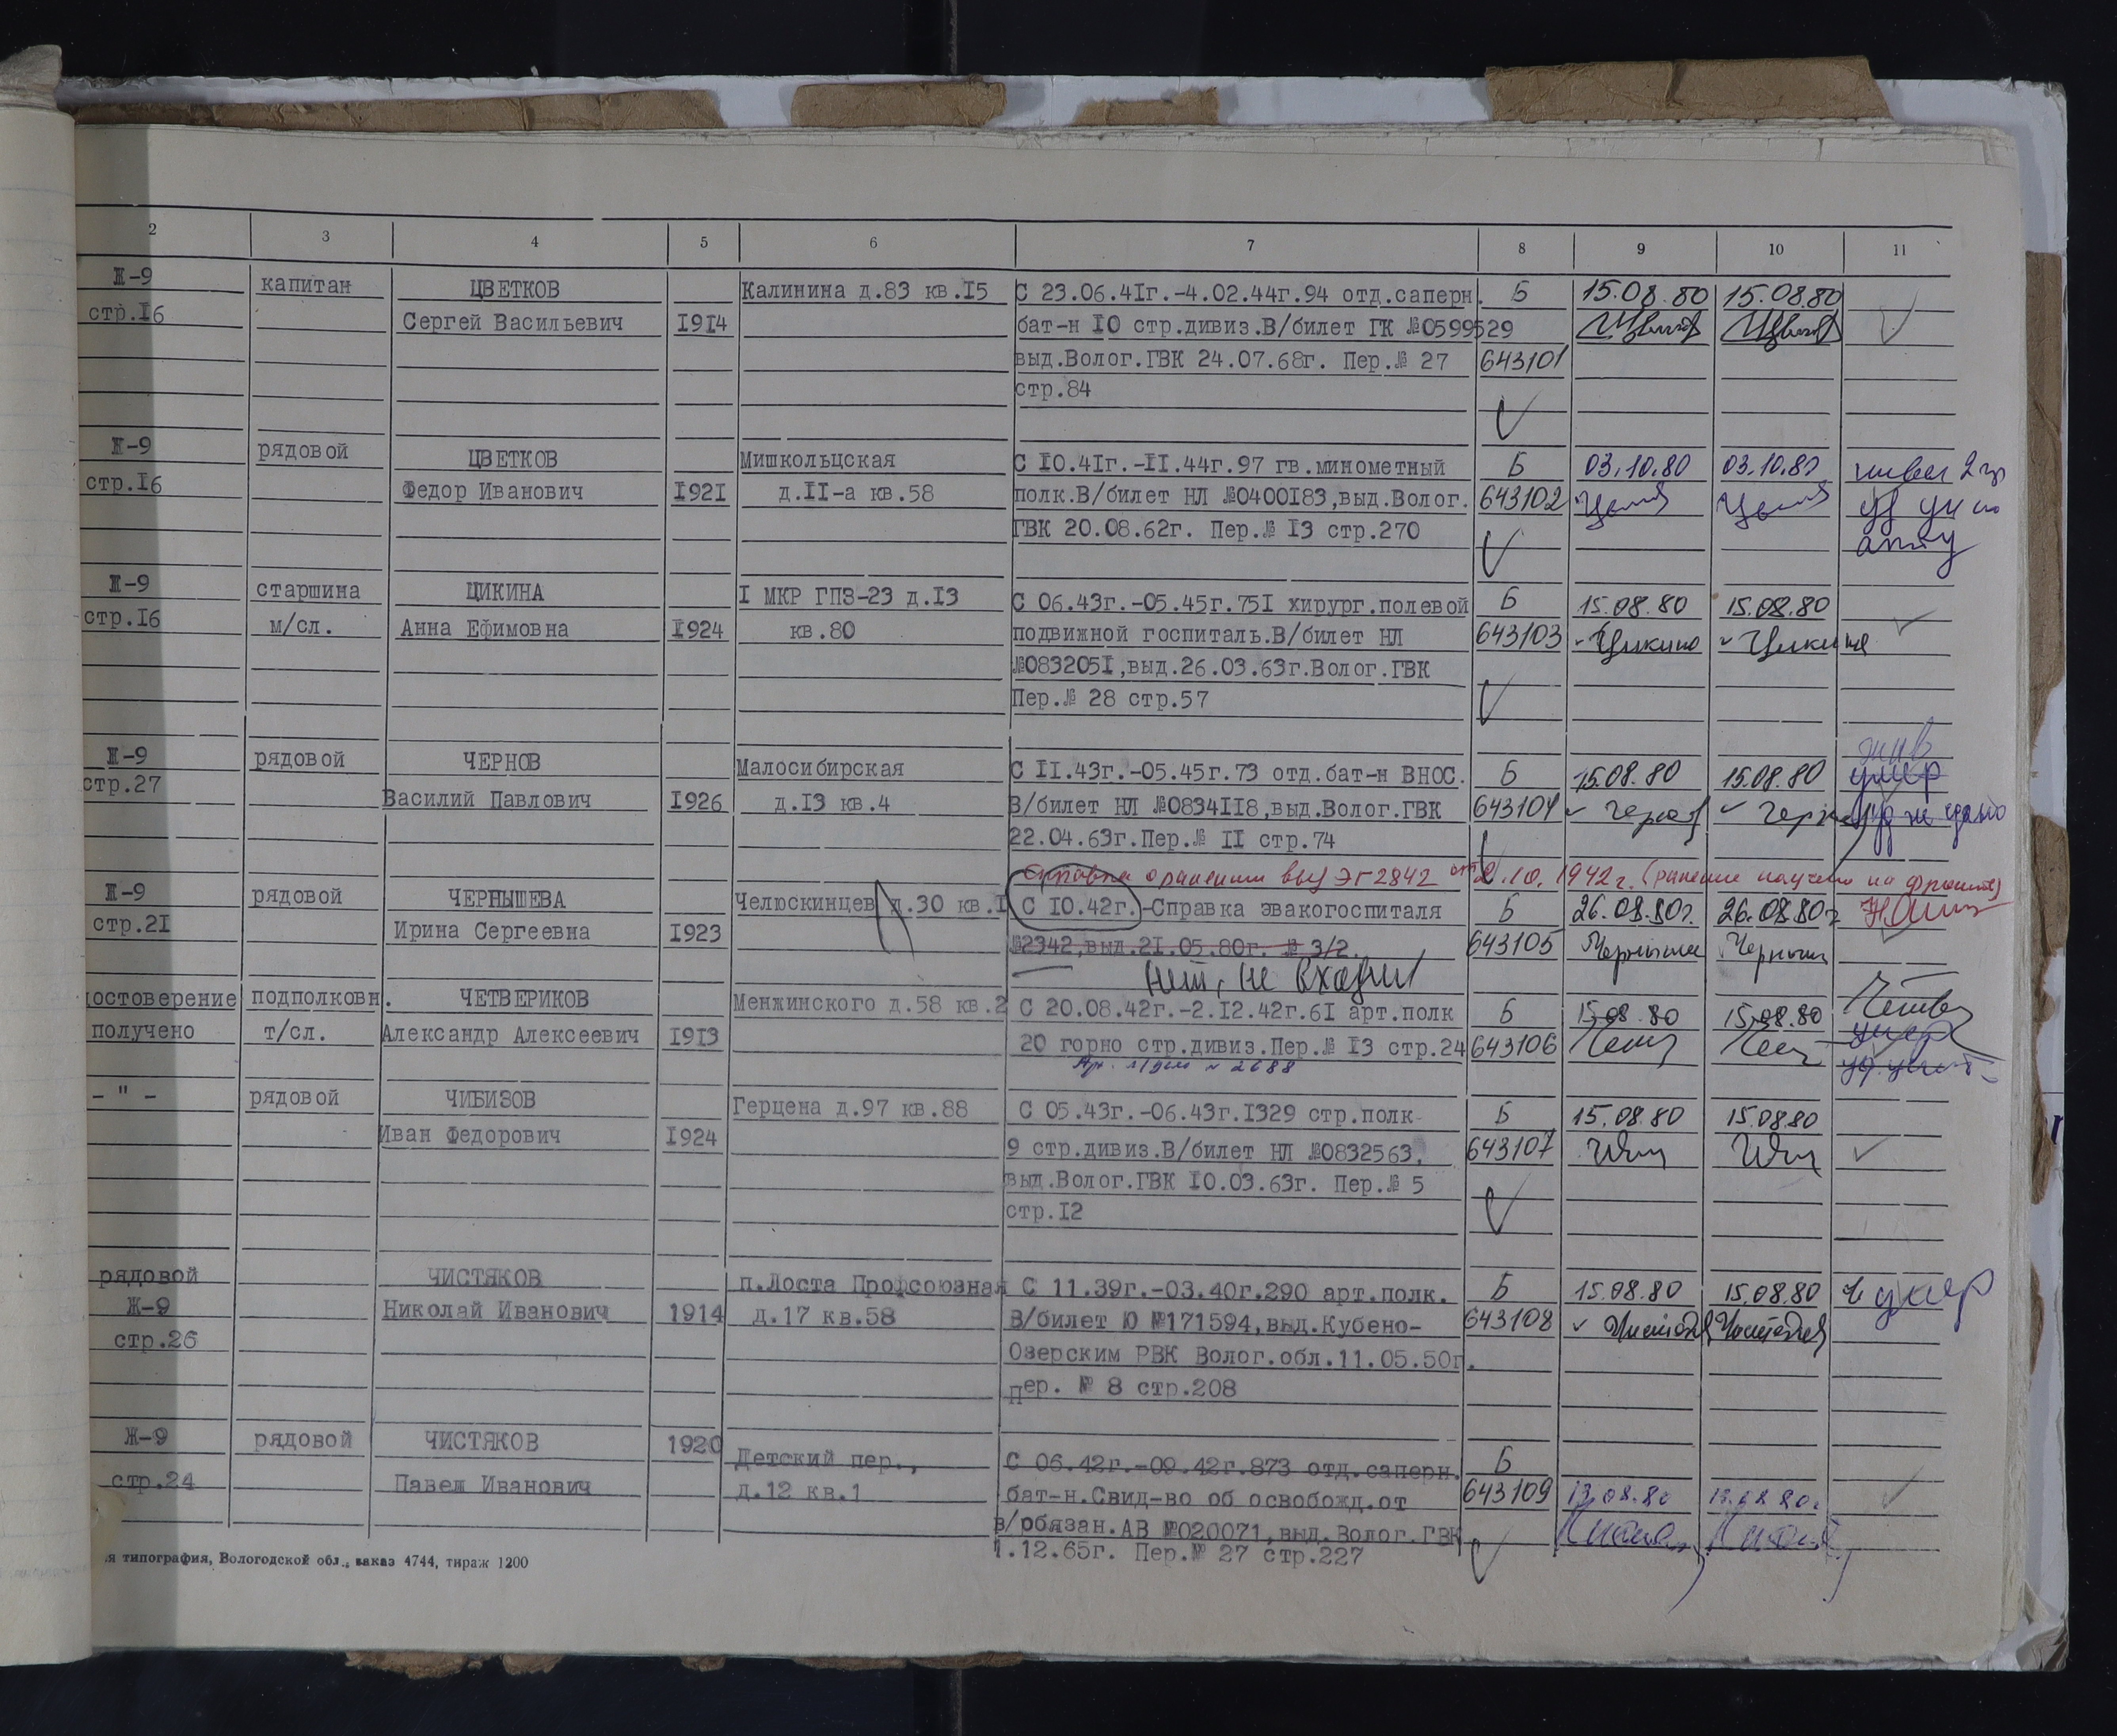 2 3 4 5 6 7 8 9 10 11
Ж-9 капитан ЦВЕТКОВ Калинина д.83 кв.I5 С 23.06.4Iг.-4.02.44г.94 отд.саперн. Б 15.08.80 15.08.80
стр.I6 Сергей Васильевич I9I4 бат-н I0 стр.дивиз.В/билет ГК №0599529
выд.Волог.ГВК 24.07.68г. Пер.№ 27 643101
стр.84
Ж-9 рядовой ЦВЕТКОВ Мишкольцская С I0.4Iг.-II.44г.97 гв.минометный Б 03.10.80 03.10.80 инвал 2 гр
стр.I6 Федор Иванович I92I д.II-а кв.58 полк.В/билет НЛ №0400I83,выд.Волог. 643102
ГВК 20.08.62г. Пер.№ I3 стр.270
Ж-9 старшина ЦИКИНА I МКР ГПЗ-23 д.I3 С 06.43г.-05.45г.75I хирург.полевой Б 15.08.80 15.08.80
стр.I6 м/сл. Анна Ефимовна I924 кв.80 подвижной госпиталь.В/билет НЛ 643103 Цикина Цикина
№083205I,выд.26.03.63г.Волог.ГВК
Пер.№ 28 стр.57
жив
Ж-9 рядовой ЧЕРНОВ Малосибирская С II.43г.-05.45г.73 отд.бат-н ВНОС. Б 15.08.80 15.08.80 умер
стр.27 Василий Павлович I926 д.I3 кв.4 В/билет НЛ №0834II8,выд.Волог.ГВК 643104 уд не сдано
22.04.63г.Пер.№ II стр.74
Справка о ранении выд ЭГ 2842 от 2.10.1942 г. (ранение получено на фронте)
Ж-9 рядовой ЧЕРНЫШЕВА Челюскинцев д.30 кв.I С I0.42г.-Справка эвакогоспиталя Б 26.08.80г. 26.08.80г
стр.2I Ирина Сергеевна I923 №2342,выд.2I.05.80г. № 3/2. 643105
нет, не входит
достоверение подполковн. ЧЕТВЕРИКОВ Менжинского д.58 кв.2 С 20.08.42г.-2.I2.42г.6I арт.полк Б 15.08.80 15.08.80
получено т/сл. Александр Алексеевич I9I3 20 горно стр.дивиз.Пер.№ I3 стр.24 643106 умер
№ 2688
- " - рядовой ЧИБИЗОВ Герцена д.97 кв.88 С 05.43г.-06.43г.I329 стр.полк Б 15.08.80 15.08.80
Иван Федорович I924 9 стр.дивиз.В/билет НЛ №0832563, 643107
выд.Волог.ГВК I0.03.63г. Пер.№ 5
стр.I2
рядовой ЧИСТЯКОВ п.Лоста Профсоюзная С 11.39г.-03.40г.290 арт.полк. Б 15.08.80 15.08.80 умер
Ж-9 Николай Иванович 1914 д.17 кв.58 В/билет Ю №171594,выд.Кубено- 643108
стр.26 Озерским РВК Волог.обл.11.05.50г.
Пер. № 8 стр.208
Ж-9 рядовой ЧИСТЯКОВ 1920 Детский пер., С 06.42г.-09.42г.873 отд.саперн. Б
стр.24 Павел Иванович д.12 кв.1 бат-н.Свид-во об освобожд.от 643109 13.08.80 13.08.80г
в/обязан.АВ №020071,выд.Волог.ГВК
1.12.65г. Пер.№ 27 стр.227
я типография, Вологодской обл., заказ 4744, тираж 1200